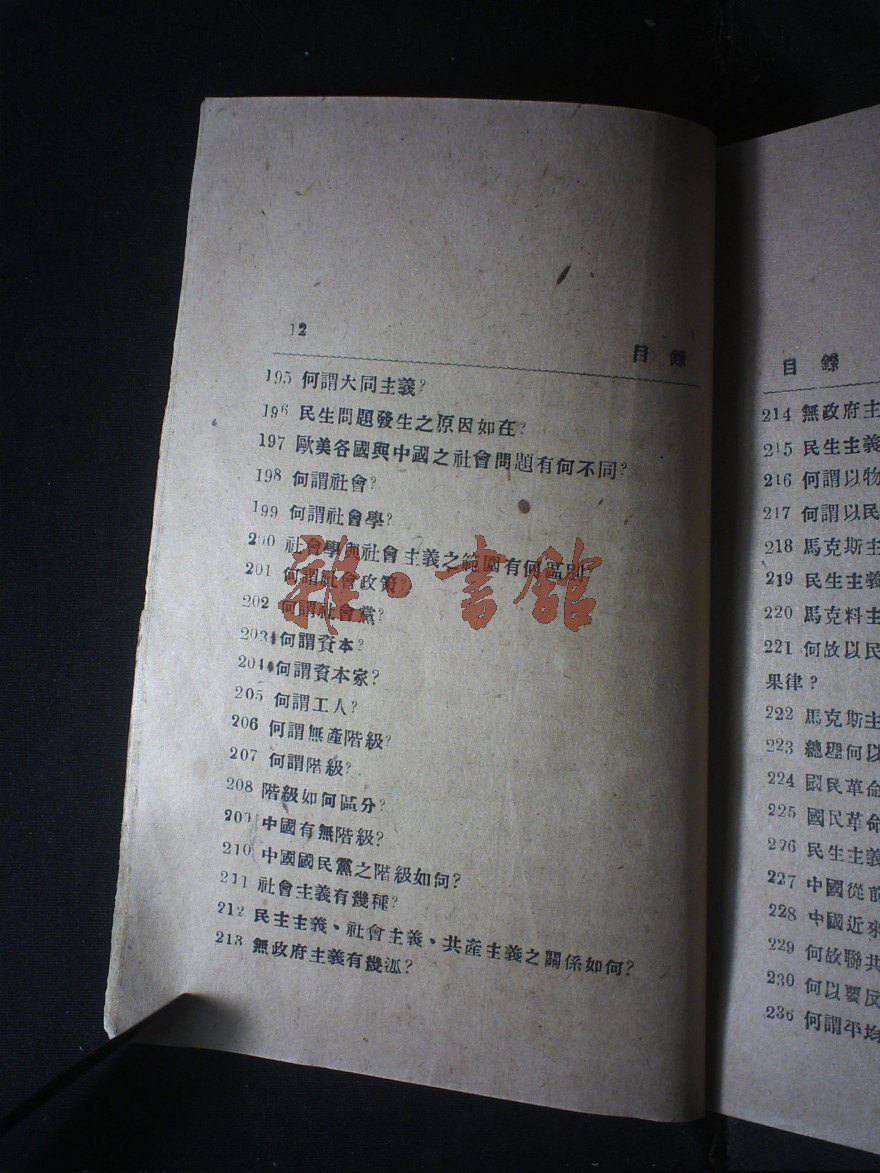 12
目錄
195 何謂大同主義?
196 民生問題發生之原因如在?
197 歐美各國與中國之社會問題有何不同?
198 何謂社會?
199 何謂社會學?
200 社會學與社會主義之範圍有何區別?
201 何謂社會政策?
202 何謂社會黨?
203 何謂資本?
204 何謂資本家?
205 何謂工人?
206 何謂無產階級?
207 何謂階級?
208 階級如何區分?
209 中國有無階級?
210 中國國民黨之階級如何?
211 社會主義有幾種?
212 民主主義、社會主義、共產主義之關係如何?
213 無政府主義有幾派?
雜·書館
目錄
214 無政府主
215 民生主義
216 何謂以物
217 何謂以民
218 馬克斯主
219 民生主義
220 馬克料主
221 何故以民
果律?
222 馬克斯主
223 總理何以
224 國民革命
225 國民革命
226 民生主義
227 中國從前
228 中國近來
229 何故聯共
230 何以要反
236 何謂平均